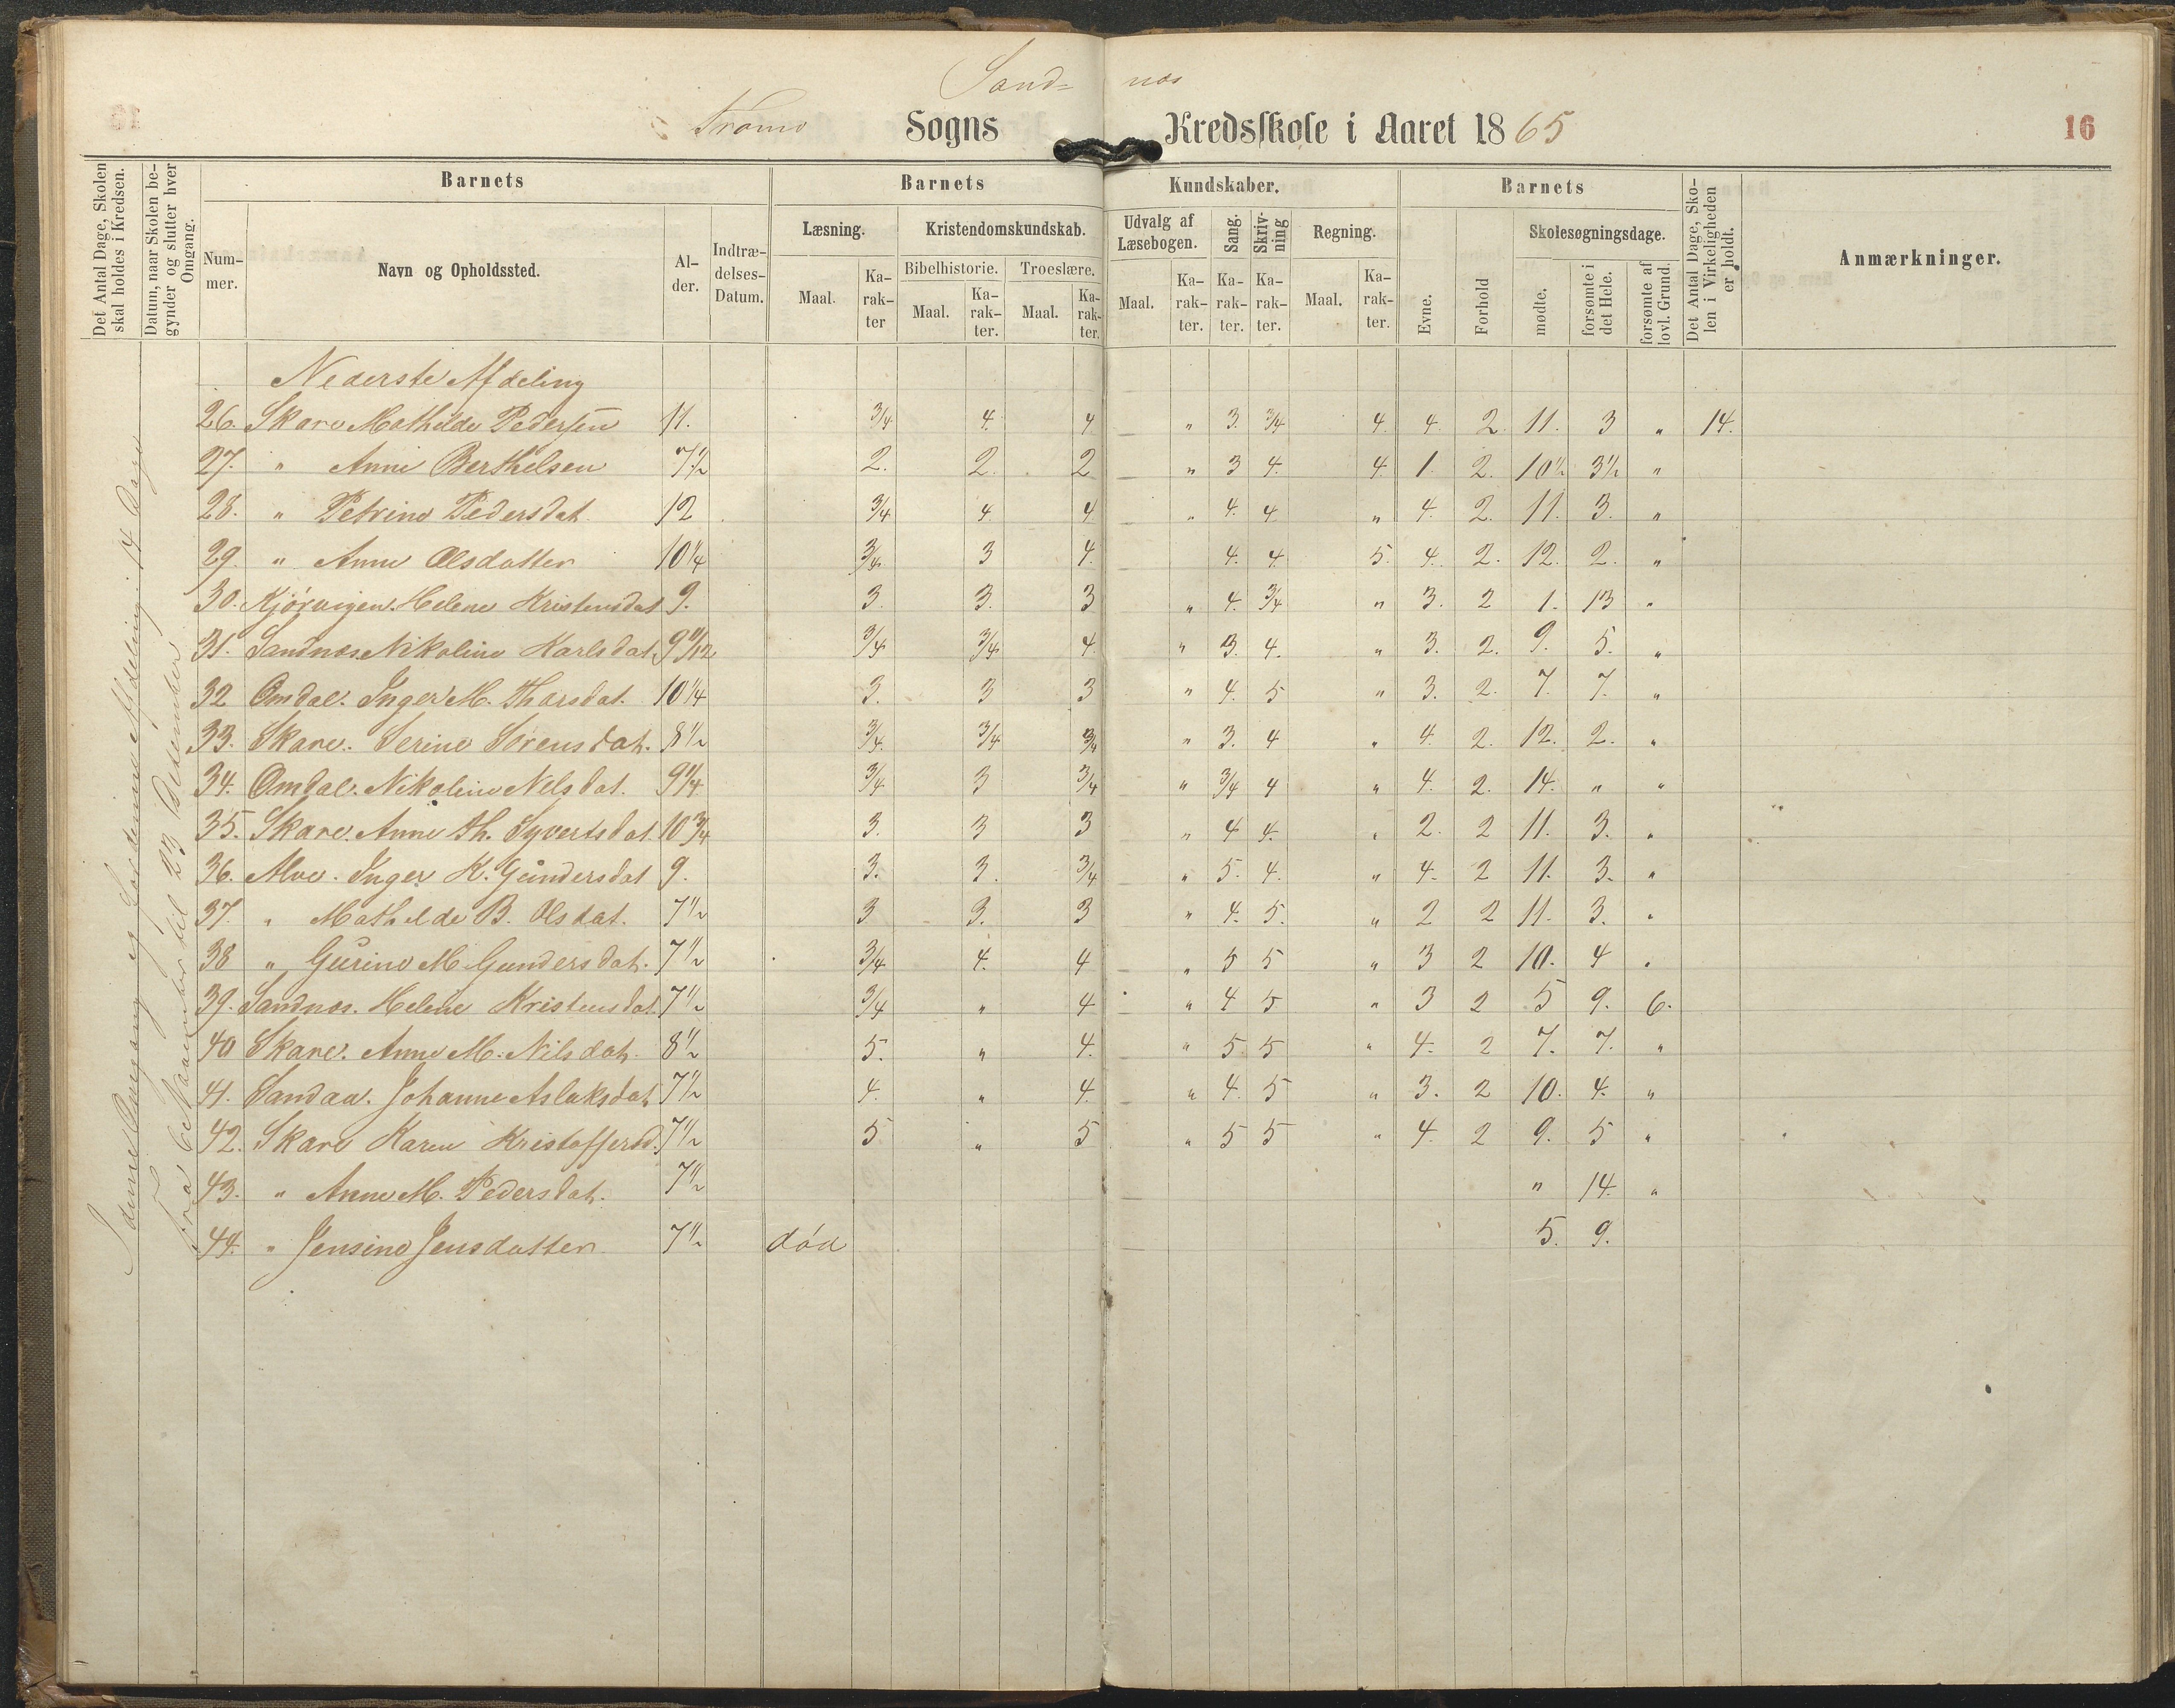 Sand= næs
Tromø Sogns Kredsskole i Aaret 1865 16
Det Antal Dage, Skolen skal holdes i Kredsen.
Datum, naar Skolen begynder og slutter hver Omgang.
Barnets Barnets Kundskaber. Barnets
Nummer. Navn og Opholdssted. Alder. Indtrædelses-Datum.
Læsning. Kristendomskundskab. Udvalg af Læsebogen. Sang. Skrivning Regning.
Bibelhistorie. Troeslære.
Maal. Karakter Maal. Karakter. Maal. Karakter. Maal. Karakter. Karakter. Karakter. Maal. Karakter.
Evne. Forhold Skolesøgningsdage. mødte. forsømte i det Hele. forsømte af lovl. Grund.
Det Antal Dage, Skolen i Virkeligheden er holdt.
Anmærkninger.
Nederste Afdeling
26. Skare Mathilde Pedersen 11. 3/4 4. 4 " 3. 3/4 4. 4. 2. 11. 3 " 14.
27. " Anne Berthelsen 7 1/2 2. 2. 2 " 3 4. 4 1. 2. 10 1/2 3 1/2 "
28. " Petrine Pedersdat. 12 3/4 4. 4. " 4. 4 " 4. 2. 11. 3. "
29. " Anne Olsdatter 10 1/4 3/4 3 4. 4. 4. 5. 4. 2. 12. 2. "
30. Kjørvigen. Helene Kristensdat 9. 3. 3. 3 " 4. 3/4 " 3. 2 1. 13 "
31. Sandnæs. Nikoline Karlsdat. 9 11/12 3/4 3/4 4. " 3. 4. " 3. 2. 9. 5. "
32 Omdal. Inger M. Tharsdat. 10 1/4 3. 3 3 " 4. 5 " 3. 2. 7. 7. "
33. Skare. Serine Sørensdat. 8 1/2 3/4 3/4 3/4 " 3. 4 " 4. 2. 12. 2. "
34. Omdal. Nikoline Nelsdat. 9 1/4 3/4 3 3/4 " 3/4 4 " 4. 2. 14. " "
35. Skare. Anne Th. Syvertsdat. 10 3/4 3. 3 3 " 4 4. " 2. 2 11. 3. "
36. Alve. Inger K. Gundersdat 9. 3. 3. 3/4 " 5. 4. " 4. 2 11. 3. "
37. " Mathilde B. Olsdat. 7 1/2 3 3. 3 " 4. 5. " 2 2 11. 3. "
38 " Gurine M. Gundersdat. 7 1/2 3/4 4. 4 " 5 5 " 3 2 10. 4 "
39. Sandnæs. Helene Kristensdat. 7 1/2 3/4 " 4 " 4 5. " 3 2 5 9. 6.
40 Skare. Anne M. Nilsdat. 8 1/2 5. " 4. " 5. 5 " 4. 2 7. 7. "
41. Sandaa. Johanne Aslaksdat 7 1/2 4. " 4. " 4. 5 " 3. 2 10. 4. "
42. Skare Karen Kristoffersd. 7 1/2 5 " 5 " 5 5 " 4. 2 9. 5 "
43. " Anne M. Pedersdat. 7 1/2 " 14. "
44. " Jensine Jensdatter 7 1/2 død 5. 9.
Samme Omgang og Afdeling: 14 Dage
fra til 23 December